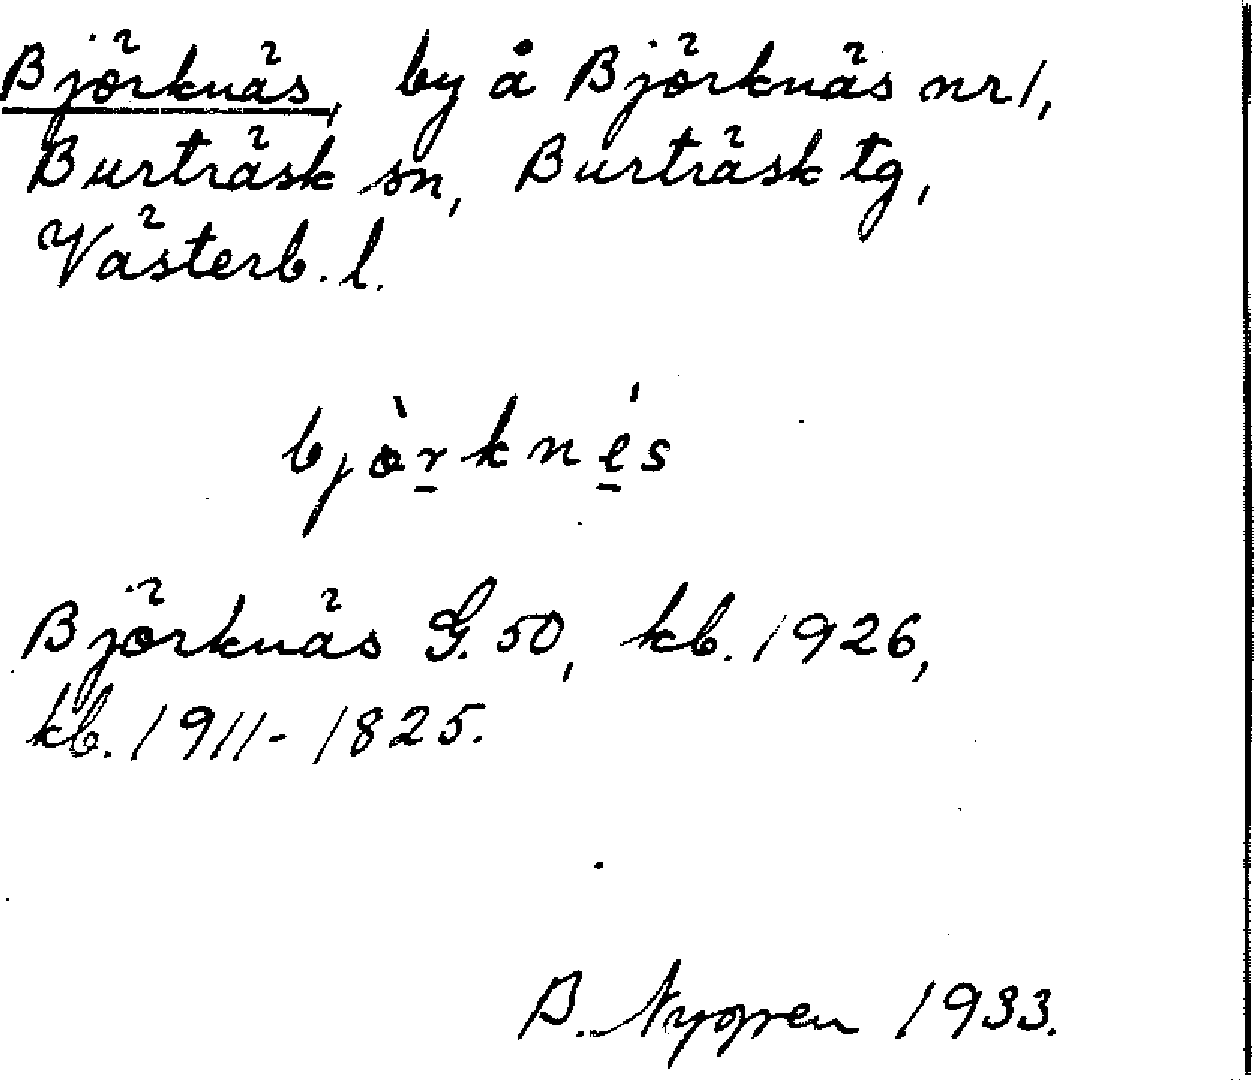 Björknäs, by å Björknäs nr 1,
Burträsk sn, Burträsk tg,
Västerb. l.
bjòrknés
Björknäs G. 50, kb. 1926,
kb. 1911-1825.
B. Nygren 1933.